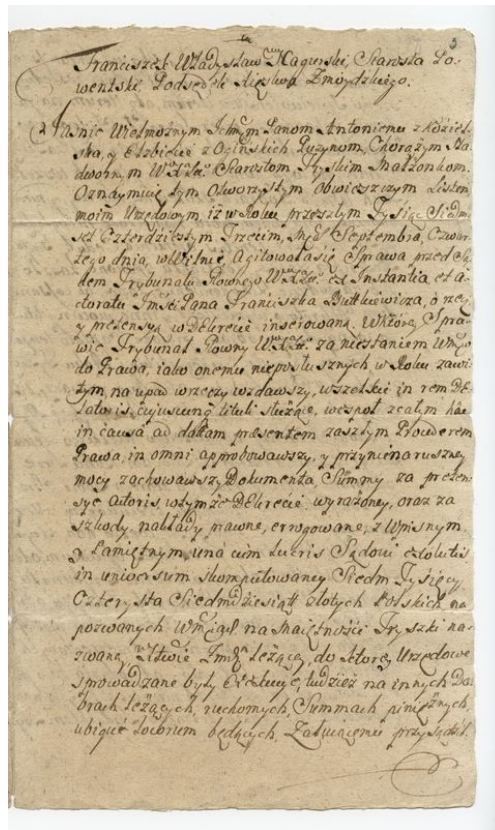 3
Franciszek Władysław Nagurski, Starosta Po-
wentski Podsędek Xięstwa Zmoydzkiego.
Wielmożnym Ichm Panom Antoniemu z Koziel-
ska, y Elzbiecie z Oginskich Puzynom, Chorązym Na-
dwornym Starostom Tryskim Małżonkom.
Oznaymuię tym Otworzystym Obwieszczym Listem
moim Urzędowym, iż w Roku przeszłym Tysiąc Siedm-
set Czterdziestym Trzecim, Septembra, Czwar-
tego dnia, w Wilnie Agitowała się Sprawa przed Są-
dem Trybunału Głownego ex Instantia et a-
ctoratu Pana Franciszka Buttkiewicza, o rzecz
y pretensyą w Dekrecie inserowaną. W ktorey Spra-
wie Trybunał Głowny za niestaniem
do Prawa, iako onemu nieposłusznych w Roku zawi-
tym, na upad w rzeczy wzdawszy, wszelkie in rem De-
latoris, cujusvis tituli służące, wespoł z całym hac
in causa ad datam præsentem zaszłym Procederem
Prawa, in omni approbowawszy, y przy nienaruszney
mocy zachowawszy Dokumenta, Summy za preten-
syę actoris, w tymże Dekrecie wyrażoney, oraz za
szkody, nakłady prawne, errogowane, z Wpisnym,
y Pamiętnym, una cum lucris Sądowi
in universum skomputowaney Siedm Tysięcy
Czterysta Siedmdziesiąt złotych Polskich, na
pozwanych na Maiętności Tryszki na-
zwaney, w Xtwie leżącey, do ktorey Urzędowe
sprowadzane były Exekucye, tudziesz na innych Do-
brach leżących, ruchomych, Summach pieniężnych,
ubique locorum będących, Załuiącemu przysądził.